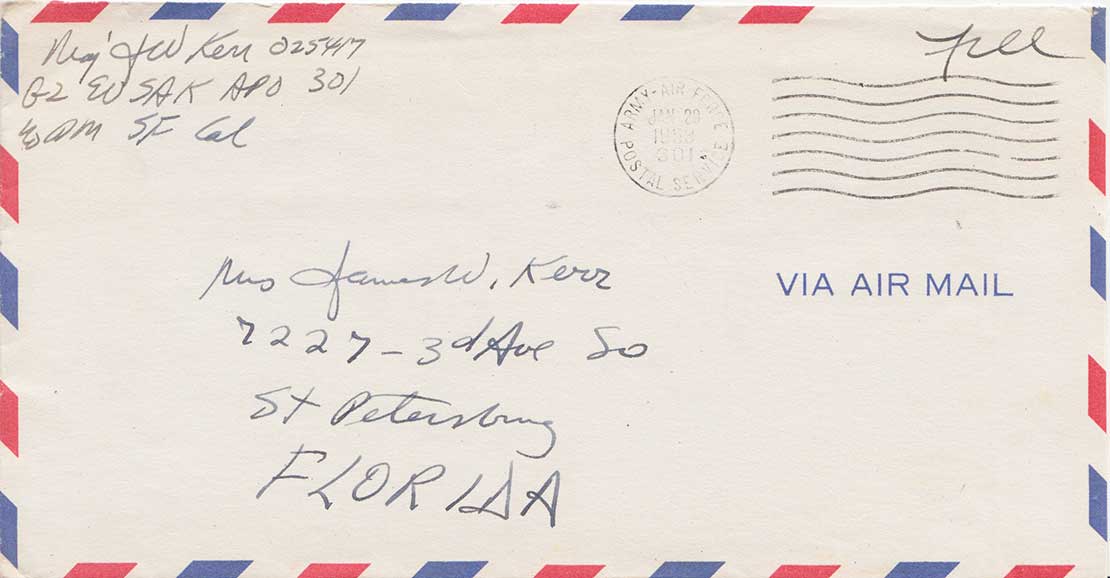 Maj J W Kerr 025417
G2 EUSAK APO 301
℅ PM SF Cal
Free
ARMY-AIR FORCE
JAN 29
1953
301
POSTAL SERVICE
VIA AIR MAIL
Mrs James W. Kerr
7227-3d Ave So
St Petersburg
FLORIDA